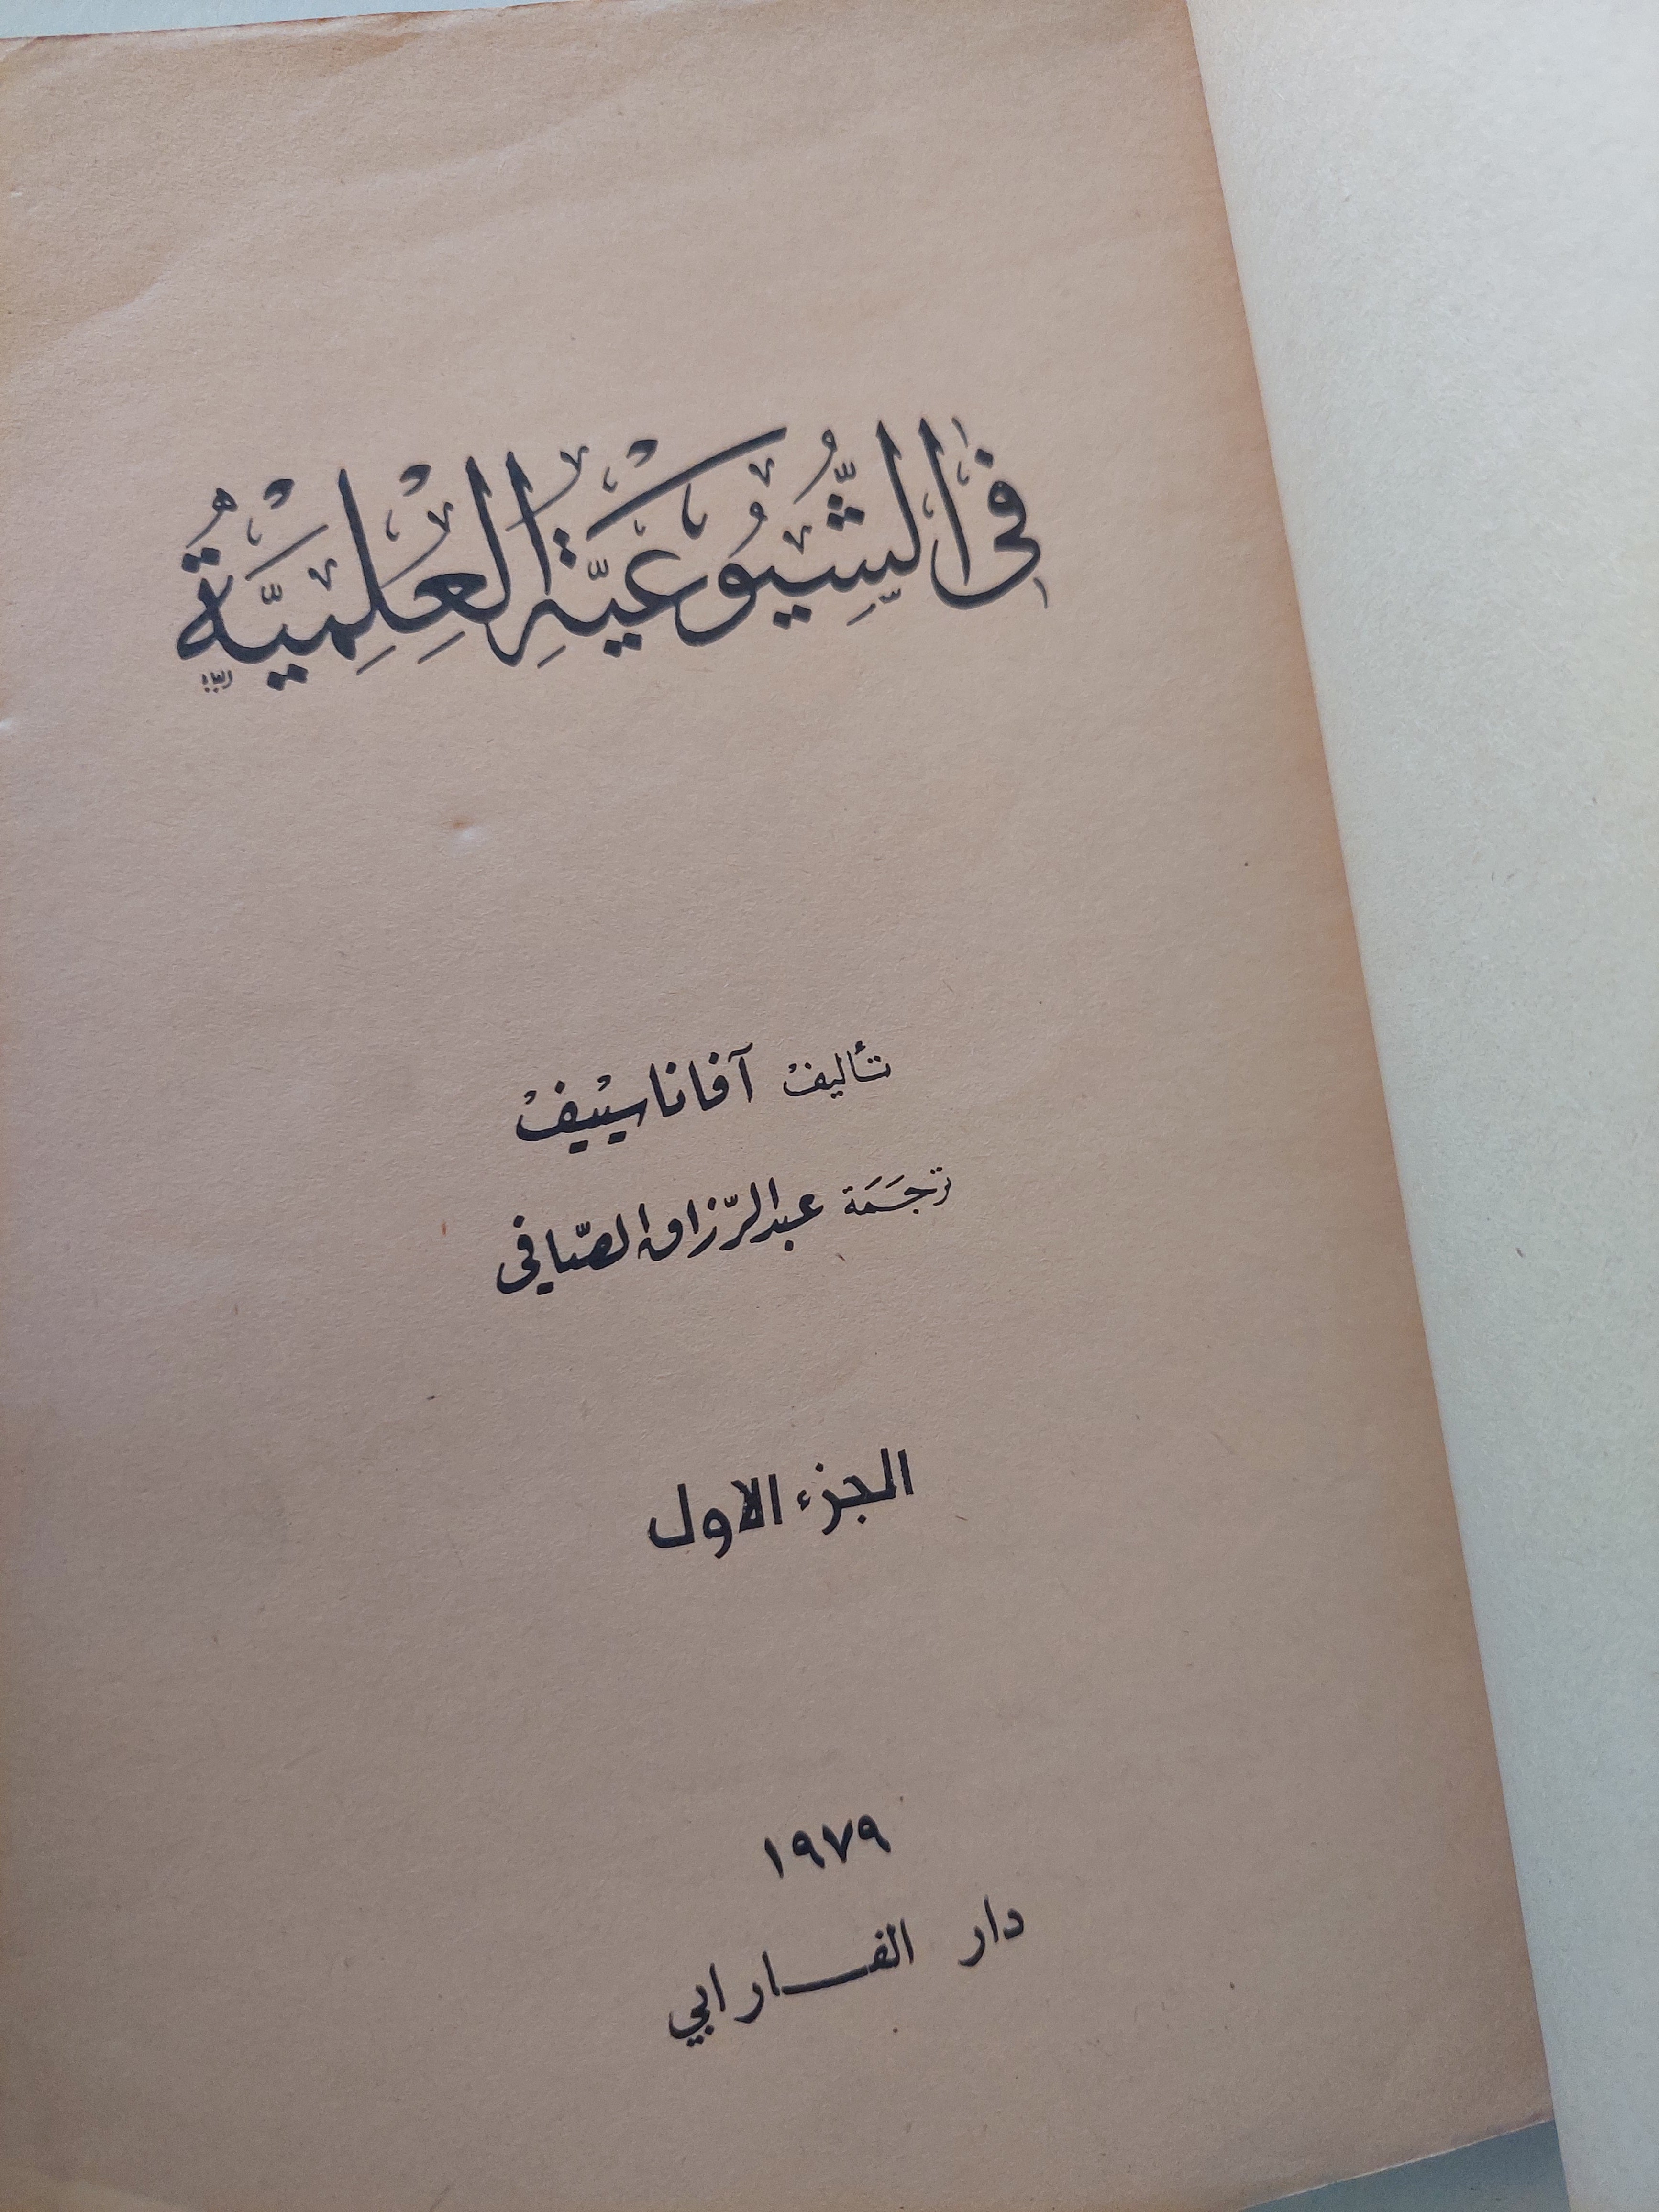 في الشُّيُوعِيَّةِ العِلْمِيَّةُ
تأليف آفاناسييف
ترجَمَة عبد الرّزاق الصّافي
الجزء الاول
١٩٧٩
دار الفـــارابي